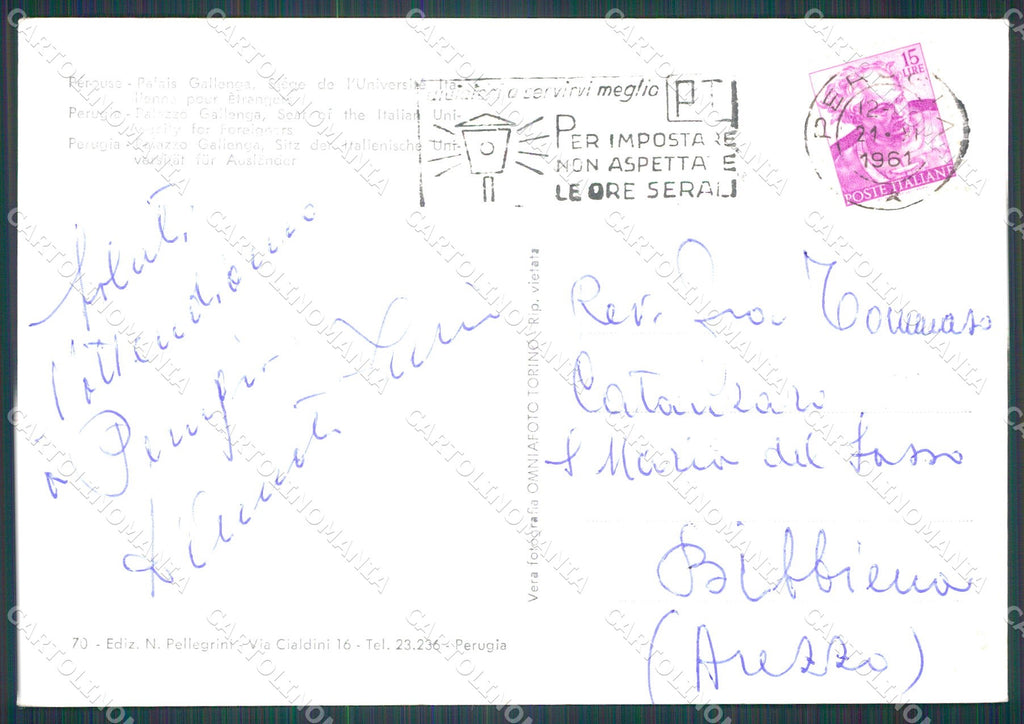 Pérouse - Palais Gallenga, Siège de l'Université Ita-
lienne pour Étrangers
Perugia - Palazzo Gallenga, Seat of the Italian Uni-
versity for Foreigners
Perugia - Palazzo Gallenga, Sitz der Italienische Uni-
versität für Ausländer
a servirvi meglio
PT
PER IMPOSTARE
NON ASPETTATE
LE ORE SERALI
15
LIRE
POSTE ITALIANE
1961
Saluti
l'attendiamo
a Perugia
Vera fotografia OMNIAFOTO TORINO Rip. vietata
Rev. Fra Tommaso
Catanzaro
S Maria del Sasso
Bibbiena
(Arezzo)
70 - Ediz. N. Pellegrini - Via Cialdini 16 - Tel. 23.236 - Perugia
CARTOLINOMANIA